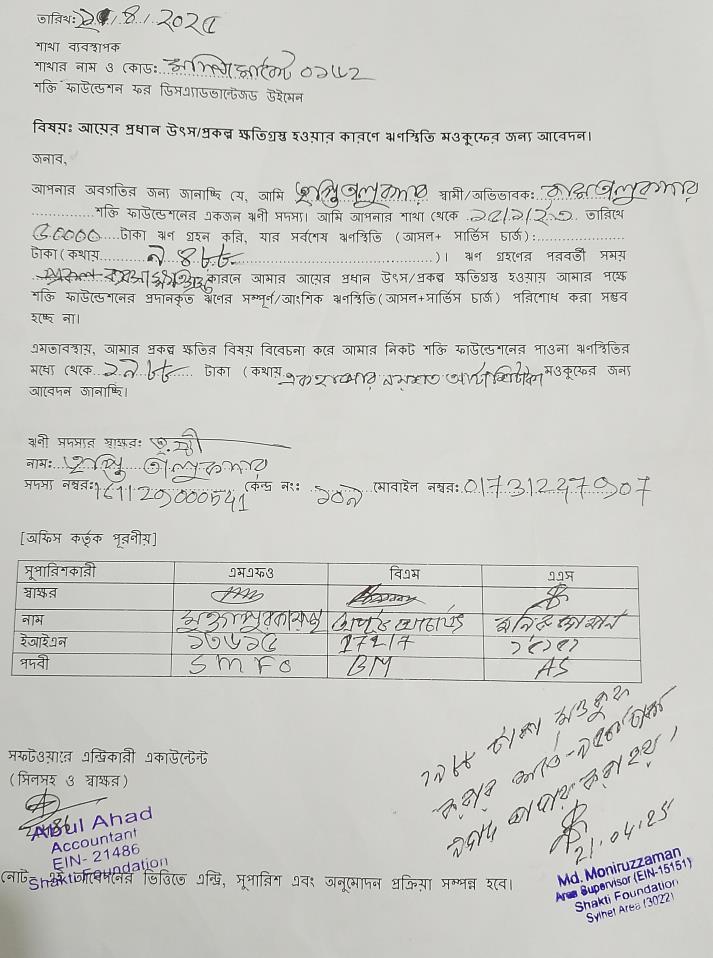 তারিখ: ২১/8/২০২৫
শাখা ব্যবস্থাপক
শাখার নাম ও কোড: ০১৬২
শক্তি ফাউন্ডেশন ফর ডিসএ্যাডভান্টেজড উইমেন
বিষয়ঃ আয়ের প্রধান উৎস/প্রকল্প ক্ষতিগ্রস্ত হওয়ার কারণে ঋণস্থিতি মওকুফের জন্য আবেদন।
জনাব,
আপনার অবগতির জন্য জানাচ্ছি যে, আমি তালুকদার স্বামী/অভিভাবক: তালুকদার
শক্তি ফাউন্ডেশনের একজন ঋনী সদস্য। আমি আপনার শাখা থেকে তারিখে
৫0000 টাকা ঋণ গ্রহন করি, যার সর্বশেষ ঋণস্থিতি (আসল+ সার্ভিস চার্জ):
টাকা(কথায় ৯৪৮৮ )। ঋণ গ্রহণের পরবর্তী সময়
কারনে আমার আয়ের প্রধান উৎস/প্রকল্প ক্ষতিগ্রস্ত হওয়ায় আমার পক্ষে
শক্তি ফাউন্ডেশনের প্রদানকৃত ঋণের সম্পূর্ণ/আংশিক ঋণস্থিতি(আসল+সার্ভিস চার্জ) পরিশোধ করা সম্ভব
হচ্ছে না।
এমতাবস্থায়, আমার প্রকল্প ক্ষতির বিষয় বিবেচনা করে আমার নিকট শক্তি ফাউন্ডেশনের পাওনা ঋণস্থিতির
মধ্যে থেকে ১৯৮৮ টাকা (কথায় একহাজার নয়শত আটাশিটাকা মওকুফের জন্য
আবেদন জানাচ্ছি।
ঋণী সদস্যর স্বাক্ষর:
নাম: তালুকদার
সদস্য নম্বর: 161129000541 কেন্দ্র নং: ১০৯ মোবাইল নম্বর: 01731247907
[অফিস কর্তৃক পূরণীয়]
সুপারিশকারী এমএফও বিএম এএস
স্বাক্ষর
নাম
ইআইএন ১৩৬১৫ 17217 ১৫১৫১
পদবী SMFO BM AS
১৯৮৮ টাকা মওকুফ
করার শর্তে টাকা
নগদ আদায় করা হয়।
21.04.25
সফটওয়ারে এন্ট্রিকারী একাউন্টেন্ট
(সিলসহ ও স্বাক্ষর)
21486
Abul Ahad
Accountant
EIN- 21486
Shakti Foundation
Md. Moniruzzaman
Area Supervisor (EIN-15151)
Shakti Foundation
Sylhet Area (3022)
নোট: এই আবেদনের ভিত্তিতে এন্ট্রি, সুপারিশ এবং অনুমোদন প্রক্রিয়া সম্পন্ন হবে।